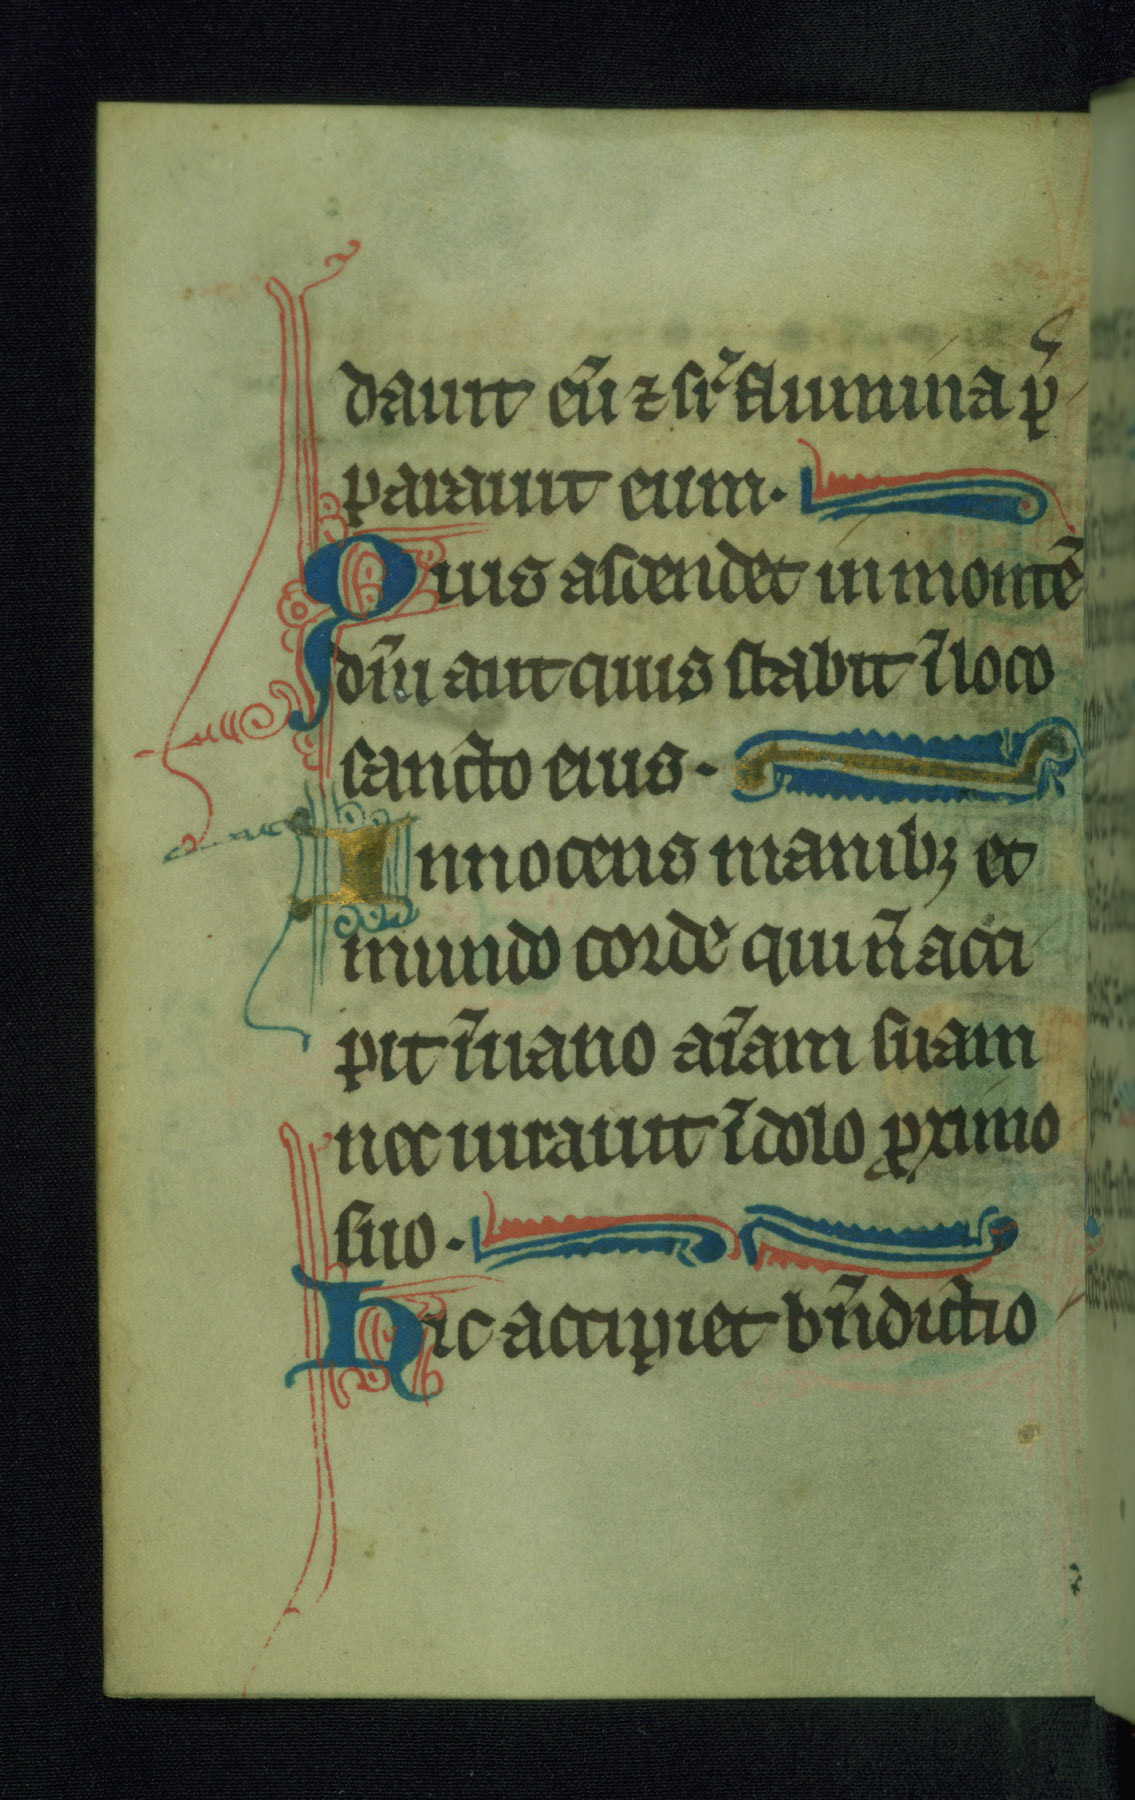 dauit eu̅ ⁊ sr̅ flumina p̅
parauit eum.
Quis ascendet in monte̅
dn̅i aut quis stabit i̅ loco
sancto eius.
Innocens manibꝫ et
mundo corde qui n̅ acci
pit i̅ uano ai̅am suam
nec iurauit i̅ dolo ꝓximo
suo.
Hic accipiet bn̅dictio